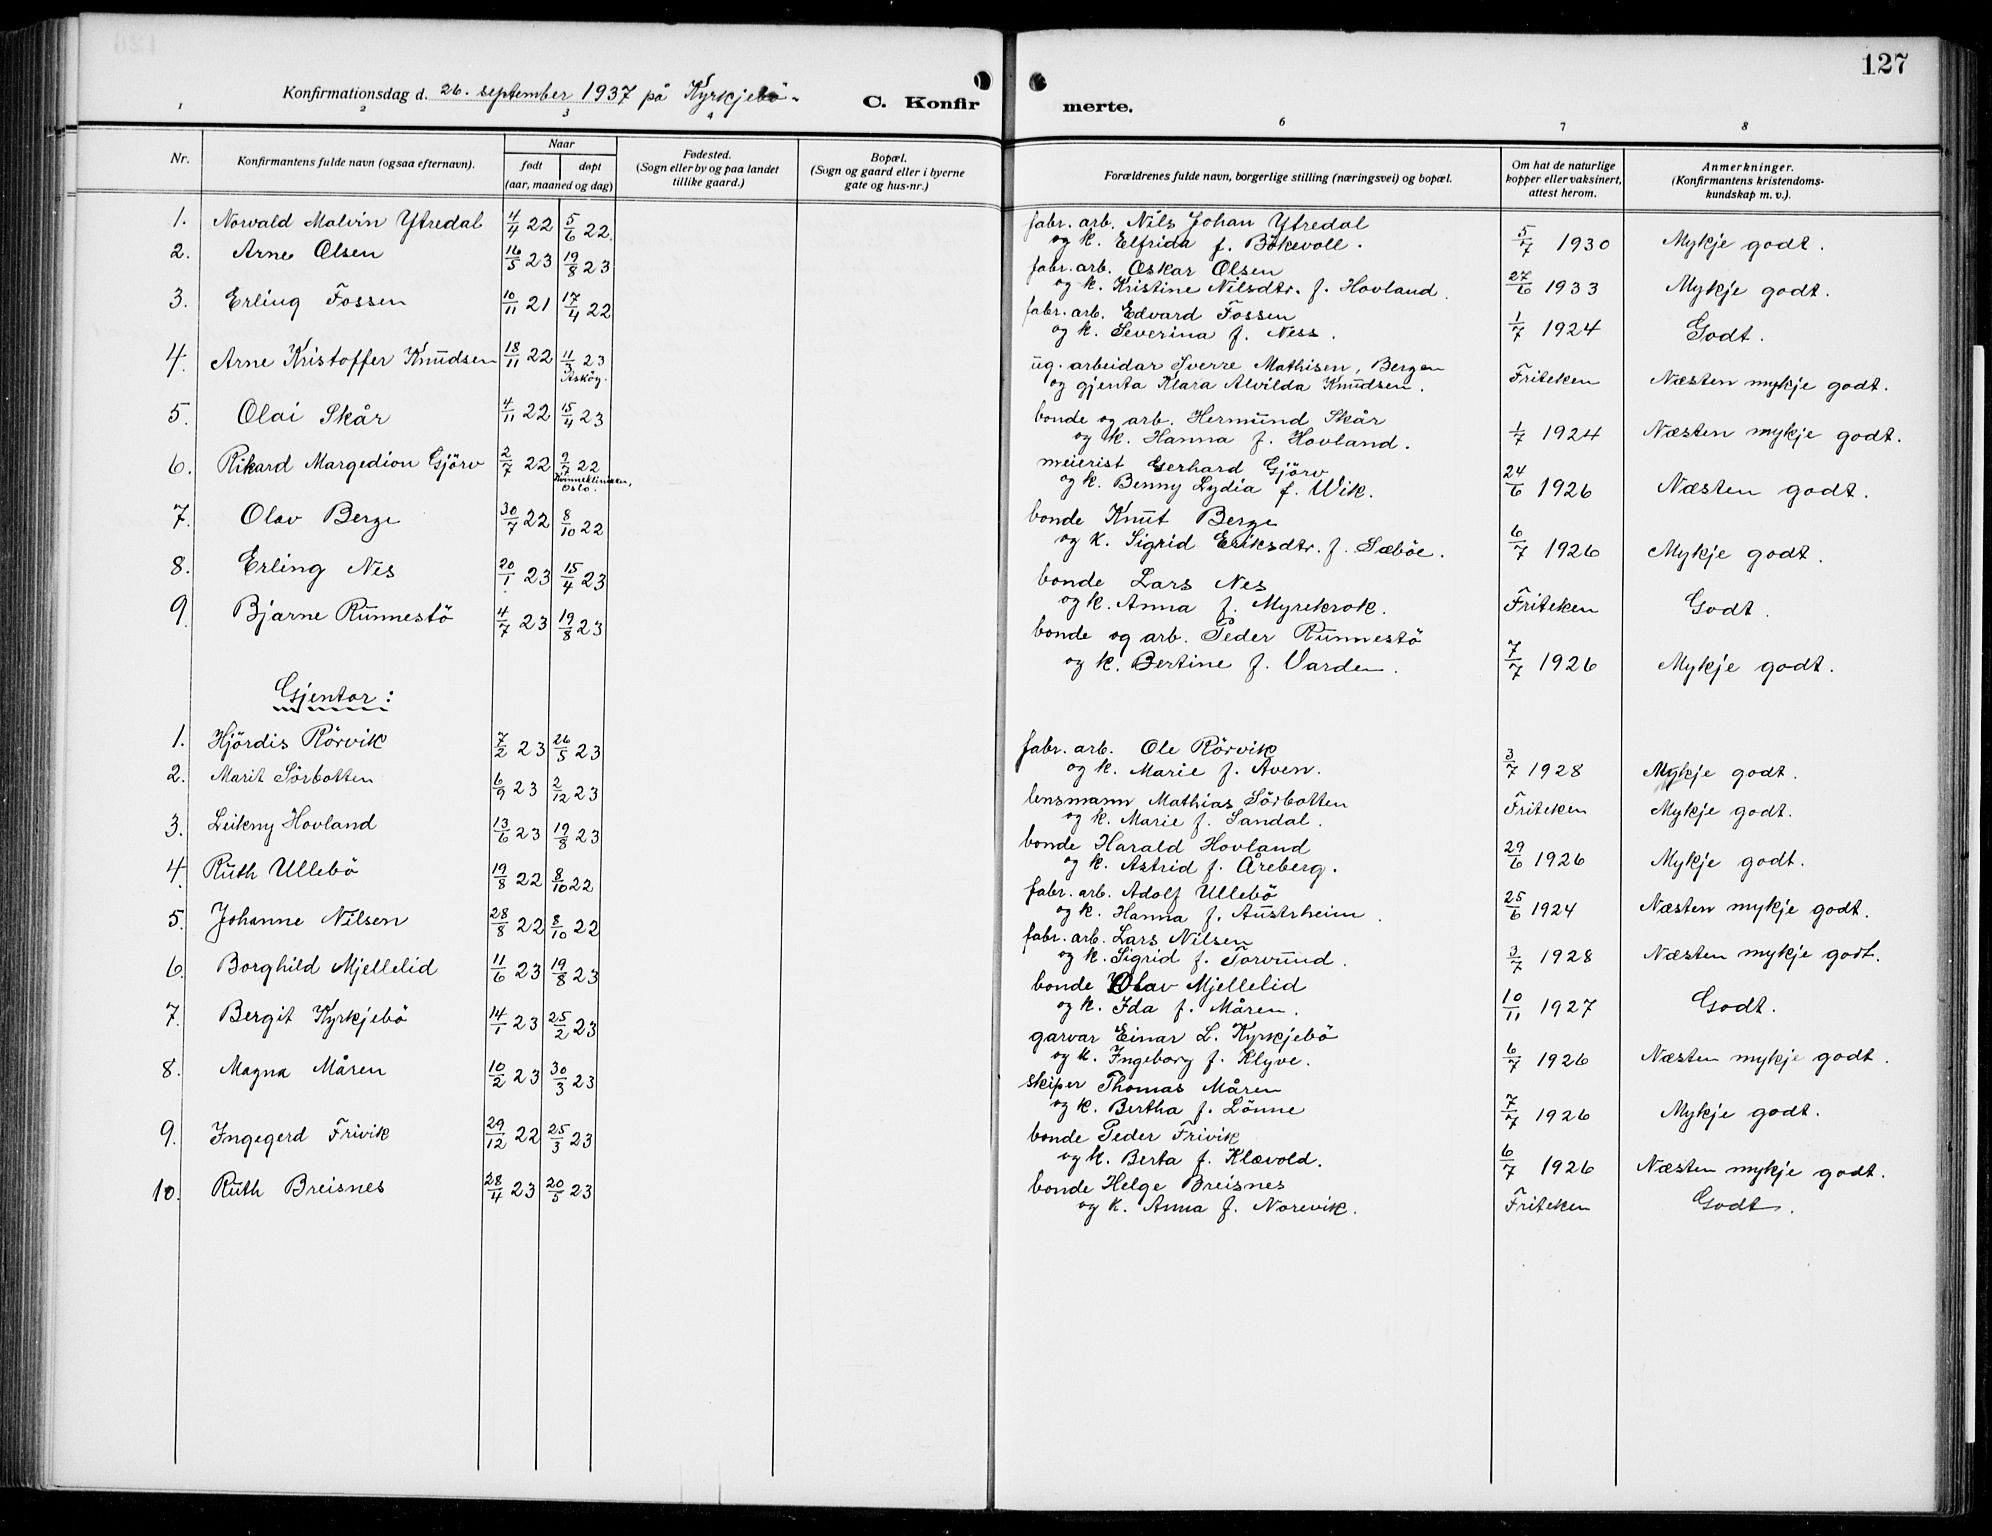 127
Konfirmationsdag d. 26. september 1937 på Kyrkjebö.
C. Konfirmerte.
1 2 3 4 6 7 8
Nr. Konfirmantens fulde navn (ogsaa efternavn). Naar født døpt (aar, maaned og dag) Fødested. (Sogn eller by og paa landet tillike gaard.) Bopæl. (Sogn og gaard eller i byerne gate og hus-nr.) Forældrenes fulde navn, borgerlige stilling (næringsvei) og bopæl. Om hat de naturlige kopper eller vaksinert, attest herom. Anmerkninger. (Konfirmantens kristendomskundskap m. v.).
1. Norvald Malvin Ytredal 4/4 22 5/6 22. fabr. arb. Nils Johan Ytredal
og k. Elfrida f. Bökevoll. 5/7 1930 Mykje godt.
2. Arne Olsen 16/5 23 19/8 23 fabr. arb. Oskar Olsen
og k. Kristine Nilsdtr. f. Hovland. 27/6 1933 Mykje godt.
3. Erling Fossen 10/11 21 17/4 22 fabr. arb. Edvard Fossen
og k. Severina f. Ness. 1/7 1924 Godt.
4. Arne Kristoffer Knudsen 18/11 22 11/3 23 Askøy. ug. arbeidar Sverre Mathisen, Bergen
og gjenta Klara Alvilda Knudsen. Friteken Næsten mykje godt.
5. Olai Skår 4/11 22 15/4 23 bonde og arb. Hermund Skår
og k. Hanna f. Hovland. 1/7 1924 Næsten mykje godt.
6. Rikard Margedion Gjörv 2/7 22 9/7 22 Kvinneklinikken, Oslo. meierist Gerhard Gjörv
og k. Benny Lydia f. Wik. 24/6 1926 Næsten godt.
7. Olav Berge 30/7 22 8/10 22 bonde Knut Berge
og k. Sigrid Eriksdtr. f. Sæböe. 6/7 1926 Mykje godt.
8. Erling Nes 20/1 23 15/4 23 bonde Lars Nes
og k. Anna f. Myrekrok. Friteken Godt.
9. Bjarne Runnestö 4/7 23 19/8 23 bonde og arb. Peder Runnestö
og k. Bertine f. Varden. 7/7 1926 Mykje godt.
Gjentor:
1. Hjördis Rörvik 7/2 23 26/5 23 fabr. arb. Ole Rörvik
og k. Marie f. Aven. 3/7 1928 Mykje godt.
2. Marit Sörbotten 6/9 23 2/12 23 lensmann Mathias Sörbotten
og k. Marie f. Sandal. Friteken Mykje godt.
3. Leikny Hovland 13/6 23 19/8 23 bonde Harald Hovland
og k. Astrid f. Åreberg. 29/6 1926 Mykje godt.
4. Ruth Ullebö 19/8 22 8/10 22 fabr. arb. Adolf Ullebö
og k. Hanna f. Austrheim. 25/6 1924 Næsten mykje godt.
5. Johanne Nilsen 28/8 22 8/10 22 fabr. arb. Lars Nilsen
og k. Sigrid f. Torvund. 3/7 1928 Næsten mykje godt.
6. Borghild Mjellelid 11/6 23 19/8 23 bonde Olav Mjellelid
og k. Ida f. Måren. 10/11 1927 Godt.
7. Bergit Kyrkjebö 14/1 23 25/2 23 garvar Einar L. Kyrkjebö
og k. Ingeborg f. Klyve. 6/7 1926 Næsten mykje godt.
8. Magna Måren 10/2 23 30/3 23 skiper Thomas Måren
og k. Bertha f. Lönne 7/7 1926 Mykje godt.
9. Ingegerd Frivik 29/12 22 25/3 23 bonde Peder Frivik
og k. Berta f. Klævold. 6/7 1926 Næsten mykje godt.
10. Ruth Breisnes 28/4 23 20/5 23 bonde Helge Breisnes
og k. Anna f. Norevik. Friteken Godt.